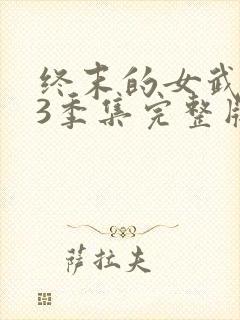 终末的女武
3季集完整版
萨拉夫